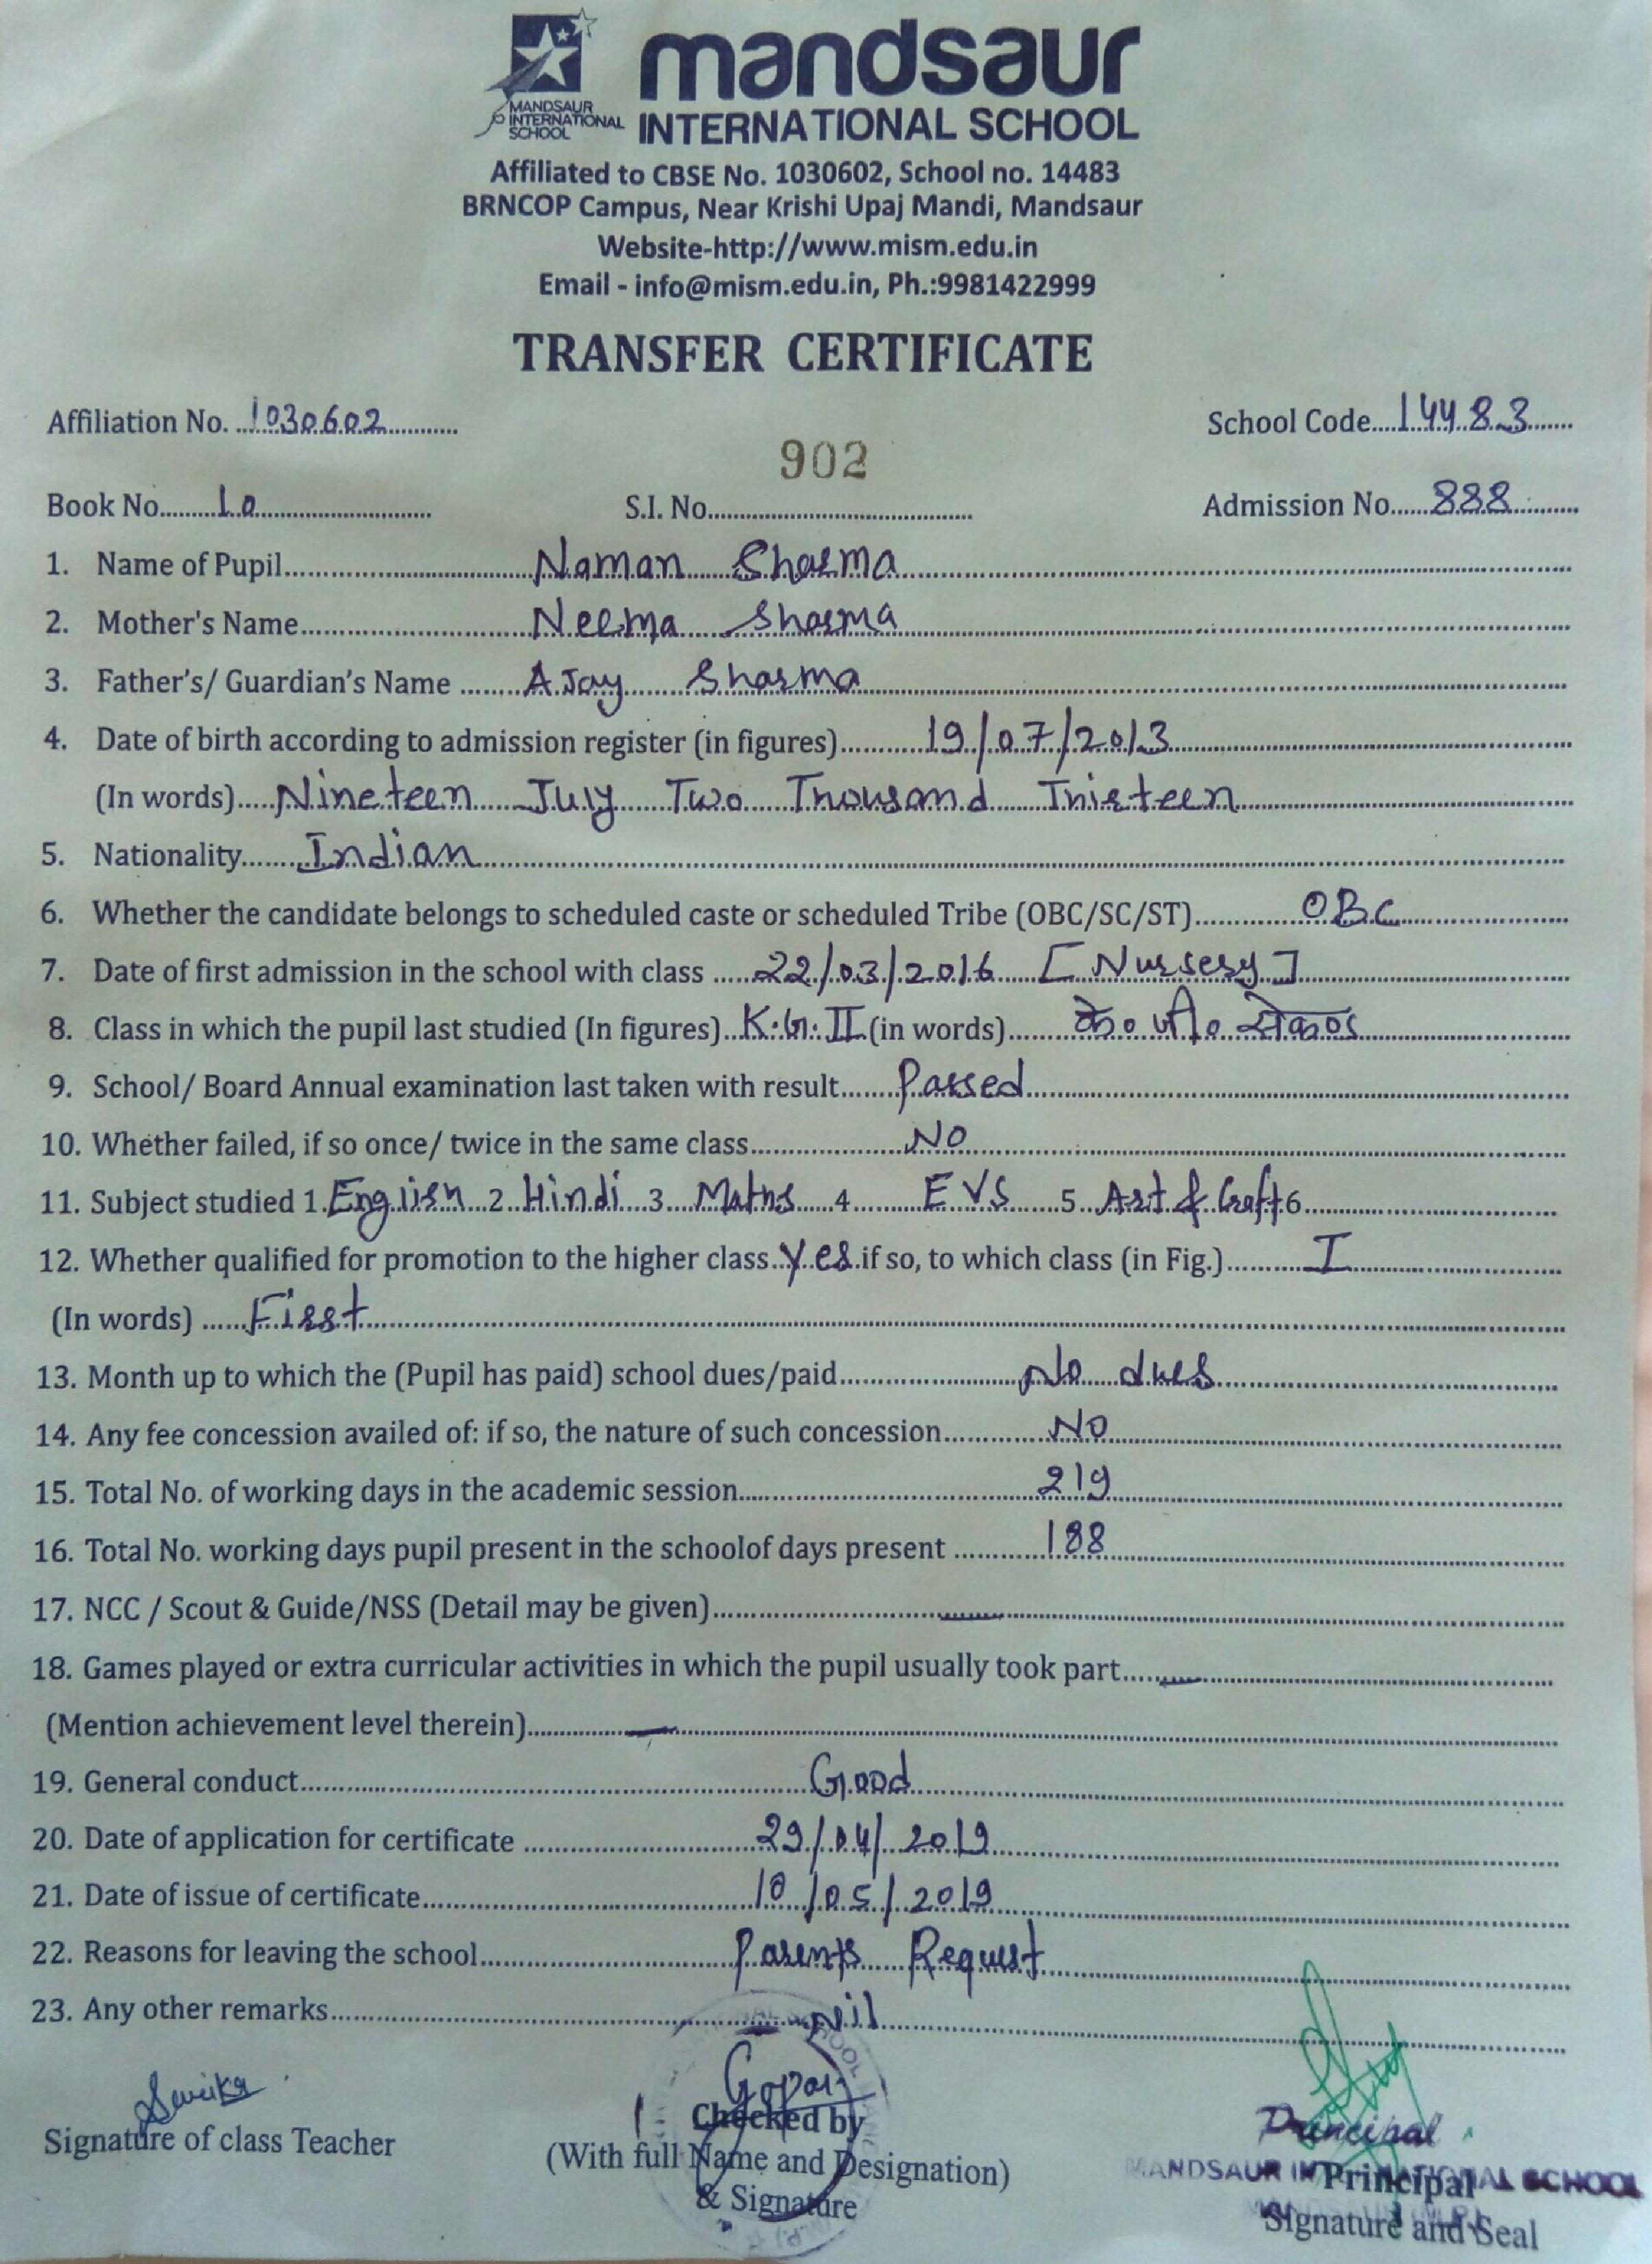 MANDSAUR
INTERNATIONAL
SCHOOL
mandsaur
INTERNATIONAL SCHOOL
Affiliated to CBSE No. 1030602, School no. 14483
BRNCOP Campus, Near Krishi Upaj Mandi, Mandsaur
Website-http://www.mism.edu.in
Email - info@mism.edu.in, Ph.:9981422999
TRANSFER CERTIFICATE
Affiliation No. 1030602 School Code 14483
902
Book No. 10 S.I. No. Admission No. 888
1. Name of Pupil Naman Sharma
2. Mother's Name Neema Sharma
3. Father's/ Guardian's Name AJay Sharma
4. Date of birth according to admission register (in figures) 19/07/2013
(In words) Nineteen July Two Thousand Thirteen
5. Nationality Indian
6. Whether the candidate belongs to scheduled caste or scheduled Tribe (OBC/SC/ST) OBC
7. Date of first admission in the school with class 22/03/2016 [Nursery]
8. Class in which the pupil last studied (In figures) K.G. II (in words) के० जी० सेकण्ड
9. School/ Board Annual examination last taken with result Passed
10. Whether failed, if so once/ twice in the same class NO
11. Subject studied 1. English 2 Hindi 3 Maths 4 EVS 5 Art & Craft 6
12. Whether qualified for promotion to the higher class Yes if so, to which class (in Fig.) I
(In words) First
13. Month up to which the (Pupil has paid) school dues/paid No dues
14. Any fee concession availed of: if so, the nature of such concession NO
15. Total No. of working days in the academic session 219
16. Total No. working days pupil present in the schoolof days present 188
17. NCC / Scout & Guide/NSS (Detail may be given) —
18. Games played or extra curricular activities in which the pupil usually took part —
(Mention achievement level therein) —
19. General conduct Good
20. Date of application for certificate 29/04/2019
21. Date of issue of certificate 10/05/2019
22. Reasons for leaving the school Parents Request
23. Any other remarks Nil
Signature of class Teacher
Checked by
(With full Name and Designation)
& Signature
Principal
MANDSAUR INTERNATIONAL SCHOOL
Principal
Signature and Seal